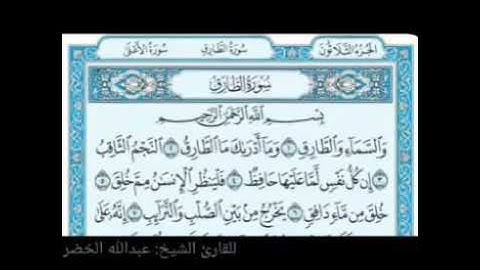 الجزء الثلاثون سورة الطارق سورة الأعلى
سُورَةُ الطَّارِقِ
بِسْمِ اللَّهِ الرَّحْمَٰنِ الرَّحِيمِ
وَالسَّمَاءِ وَالطَّارِقِ ١ وَمَا أَدْرَىٰكَ مَا الطَّارِقُ ٢ النَّجْمُ الثَّاقِبُ
٣ إِن كُلُّ نَفْسٍ لَّمَّا عَلَيْهَا حَافِظٌ ٤ فَلْيَنظُرِ الْإِنسَٰنُ مِمَّ خُلِقَ ٥
خُلِقَ مِن مَّاءٍ دَافِقٍ ٦ يَخْرُجُ مِن بَيْنِ الصُّلْبِ وَالتَّرَائِبِ ٧ إِنَّهُ عَلَىٰ
للقارئ الشيخ: عبدالله الخضر